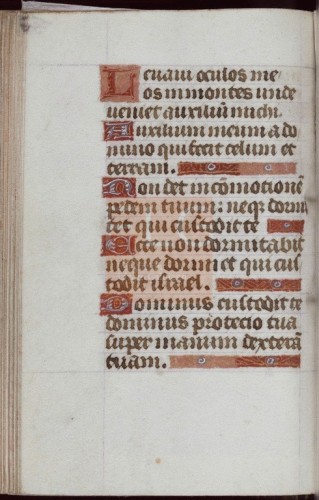 Levavi oculos me/
os in montes unde
veniet auxiliū michi.
Auxilium meum a do
mino qui fecit celum et
terram.
Non det in cōmotionē
pedem tuum: neqȝ dormi
tet qui custodit te
Ecce non dormitabit
neque dormiet qui cus
todit israel.
Dominus custodit te
dominus protecio tua
super manum dexterā
tuam.